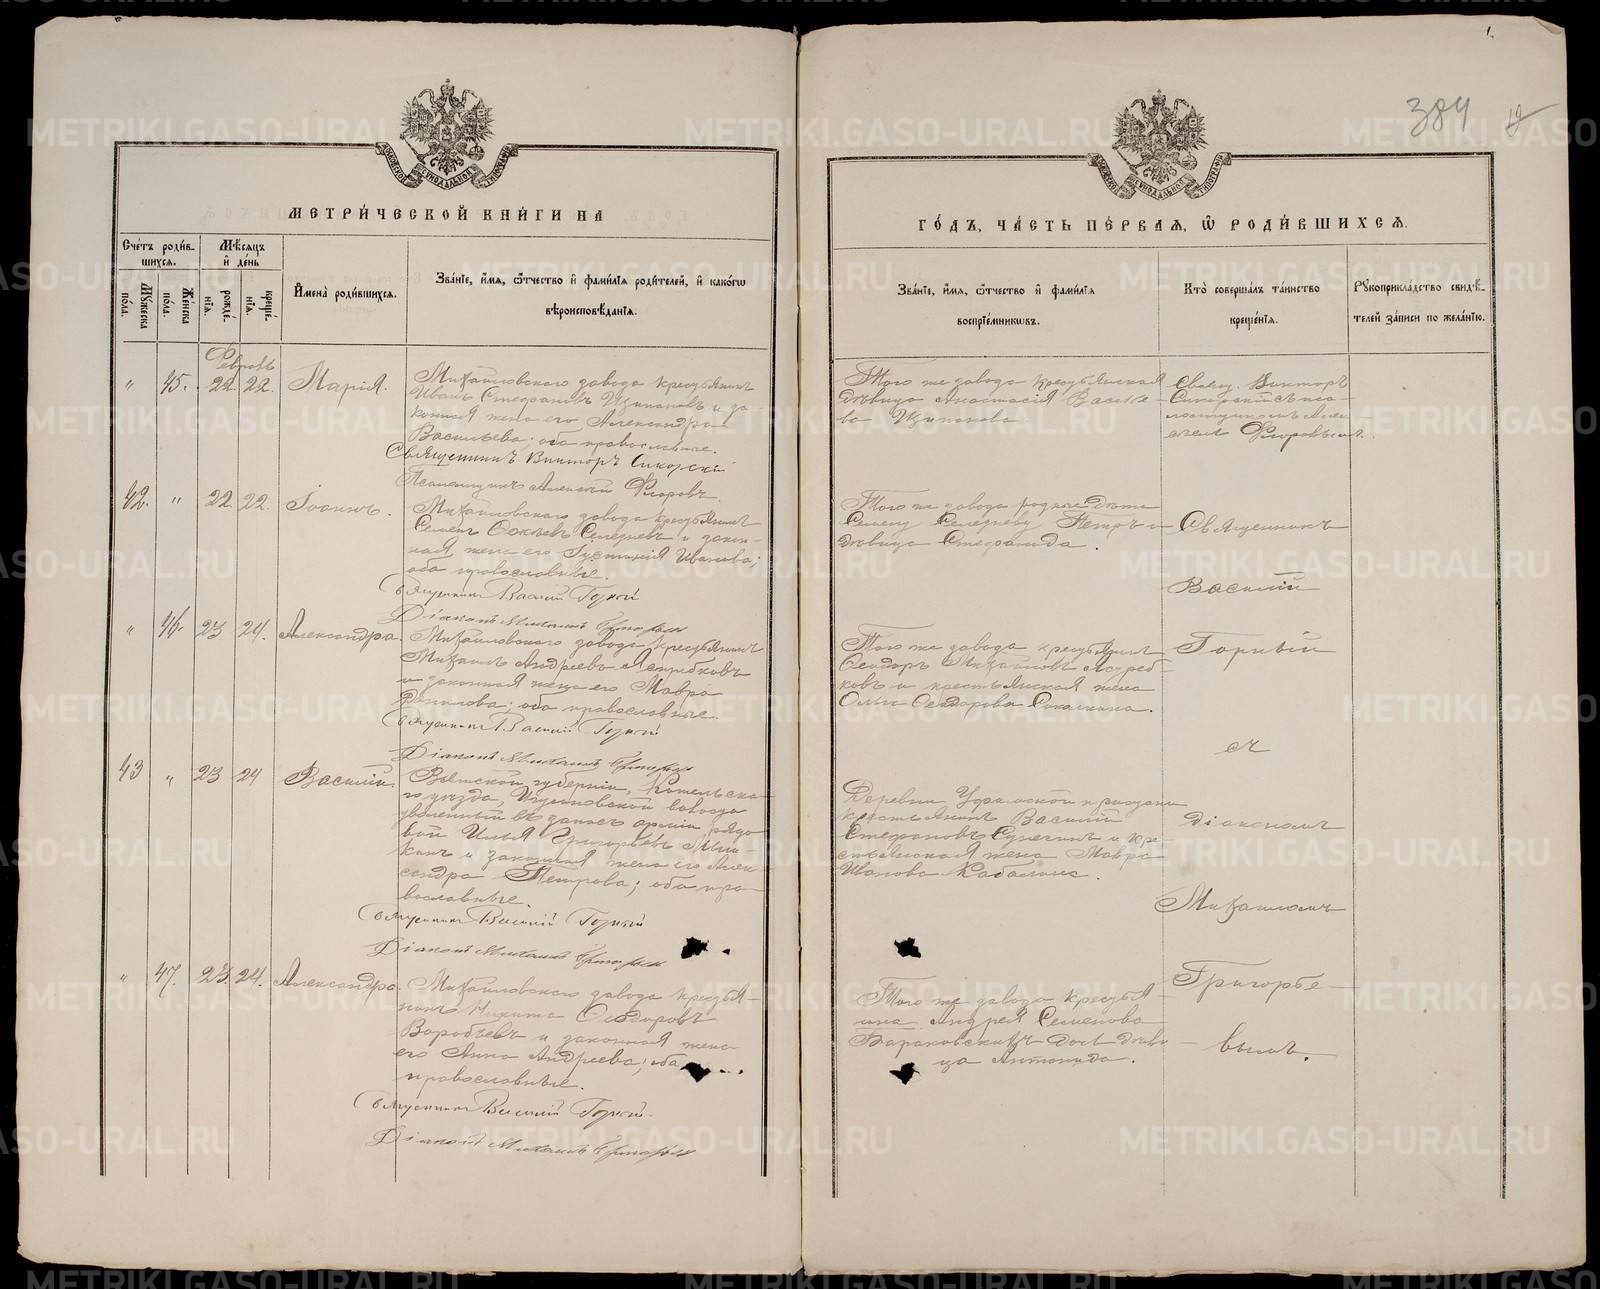 384
МЕТРИ́ЧЕСКОЙ КНИ́ГИ НА
ГО́ДЪ, ЧА́СТЬ ПЕ́РВАЯ, Ѡ РОДИ́ВШИХСЯ.
Сче́тъ роди́в-
шихся.
Мѣ́сяцъ
и де́нь
Му́жеска
по́ла.
Же́нска
по́ла.
рожде́-
нїя.
креще́-
нїя.
Имена̀ роди́вшихся.
Зва́нїе, и́мя, ѻ́тчество и фами́лїя роди́телей, и како́гѡ
вѣроисповѣ́данїя.
Зва́нїе, и́мя, ѻ́тчество и фами́лїя
воспрїе́мникѡвъ.
Кто̀ соверша́лъ та́инство
креще́нїя.
Рꙋкоприкла́дство свидѣ́-
телей за́писи по жела́нїю.
Февраль
" 45. 22 22. Марія.
Михайловскаго завода крестьянинъ
Иванъ Стефановъ Щипановъ и за-
конная жена его Александра
Васильева; оба православные.
Священникъ Викторъ Сикорскій
Псаломщикъ Алексѣй Флоровъ.
Того же завода крестьянская
дѣвица Анастасія Василье-
ва Щипанова
Священ. Викторъ
Сикорскій съ пса-
ломщикомъ Алек-
сѣемъ Флоровымъ.
42. " 22. 22. Іоаннъ.
Михайловскаго завода крестьянинъ
Семенъ
и закон-
ная жена его Іустинія Иванова;
оба православные.
Священникъ Василій Горный
Діаконъ Михаилъ Григорьевъ
Того же завода родные дѣти
Семену
Петръ и
дѣвица Стефанида.
Священникъ
Василій
" 46. 23 24. Александра.
Михайловскаго завода крестьянинъ
Михаилъ Андреевъ Ястребковъ
и законная жена его Мавра
Данилова; оба православные.
Священникъ Василій Горный
Діаконъ Михаилъ Григорьевъ
Того же завода крестьянинъ
Ѳеодоръ Михайловъ Ястреб-
ковъ и крестьянская жена
Ольга Ѳеодорова
Горный
съ
43 " 23 24 Василій.
Вятской губерніи, Котельнска-
го уѣзда,
волости
уволенный въ запасъ арміи рядо-
вой Илья Григорьевъ
и законная жена его Алек-
сандра Петрова; оба пра-
вославные.
Священникъ Василій Горный
Діаконъ Михаилъ Григорьевъ
Деревни Уфимской
крестьянинъ Василій
Стефановъ
и кре-
стьянская жена Мавра
Иванова
Діакономъ
Михаиломъ
" 47. 23. 24. Александра.
Михайловскаго завода крестья-
нинъ Никита Ѳедоровъ
Воробьевъ и законная жена
его Анна Андреева; оба
православные.
Священникъ Василій Горный.
Діаконъ Михаилъ Григорьевъ
Того же завода крестья-
нина Андрея Семенова
дочь дѣви-
ца Антонида.
Григорье-
вымъ.